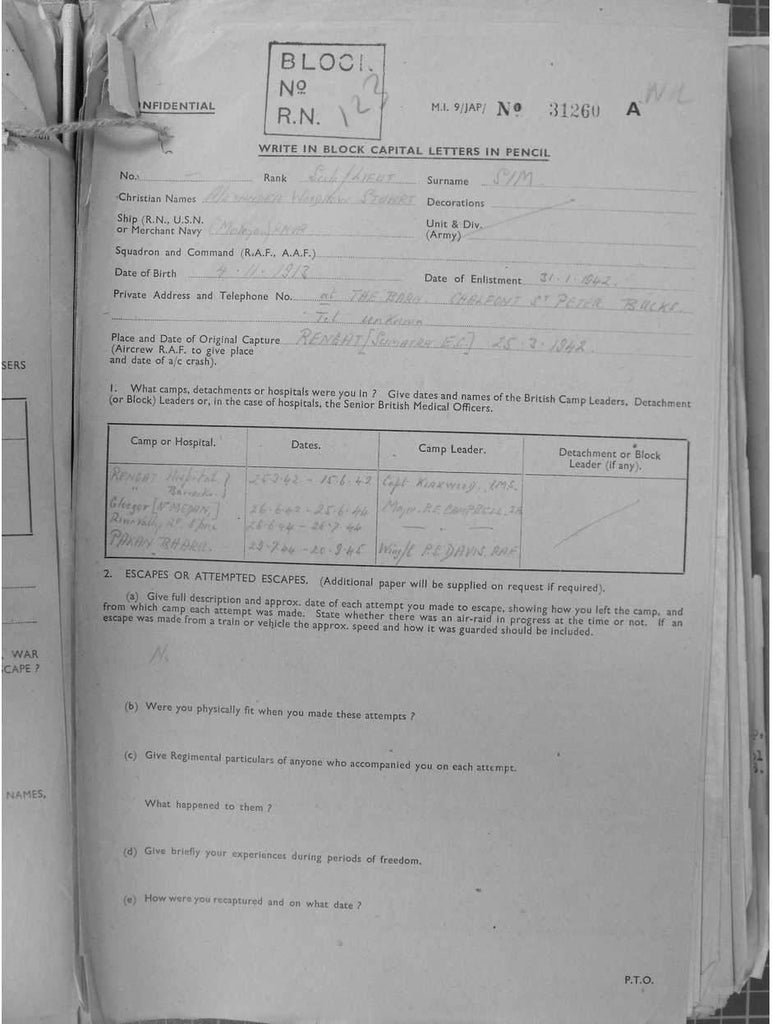 BLOCK
No
R.N. 122
NFIDENTIAL
M.I. 9/JAP/ No 31260 A
WRITE IN BLOCK CAPITAL LETTERS IN PENCIL
No. — Rank Sub/LIEUT Surname SIM
Christian Names ALEXANDER STUART Decorations
Ship (R.N., U.S.N.
or Merchant Navy
Unit & Div.
(Army)
Squadron and Command (R.A.F., A.A.F.)
Date of Birth 4.11.1913 Date of Enlistment 31.1.1942.
Private Address and Telephone No. at THE BARN. CHALFONT ST PETER BUCKS.
Tel. unknown
Place and Date of Original Capture RENGAT [SUMATRA E.C.] 25.3.1942.
(Aircrew R.A.F. to give place
and date of a/c crash).
1. What camps, detachments or hospitals were you in ? Give dates and names of the British Camp Leaders, Detachment
(or Block) Leaders or, in the case of hospitals, the Senior British Medical Officers.
Camp or Hospital. Dates. Camp Leader. Detachment or Block
Leader (if any).
RENGAT Hospital } 25-3-42 - 15.6.42 Capt KIRKWOOD, IMS.
" Barracks }
Gloegor [Nr MEDAN,] 26.6.42 - 25.6.44 Major. CAMPBELL
26.6.44 - 26.7.44 — — —
PAKAN BHARU. 29.7.44 - 20.9.45 Wing/C P.S. DAVIS. RAF
2. ESCAPES OR ATTEMPTED ESCAPES. (Additional paper will be supplied on request if required).
(a) Give full description and approx. date of each attempt you made to escape, showing how you left the camp, and
from which camp each attempt was made. State whether there was an air-raid in progress at the time or not. If an
escape was made from a train or vehicle the approx. speed and how it was guarded should be included.
N.
(b) Were you physically fit when you made these attempts ?
(c) Give Regimental particulars of anyone who accompanied you on each attempt.
What happened to them ?
(d) Give briefly your experiences during periods of freedom.
(e) How were you recaptured and on what date ?
P.T.O.
SERS
WAR
CAPE ?
NAMES,